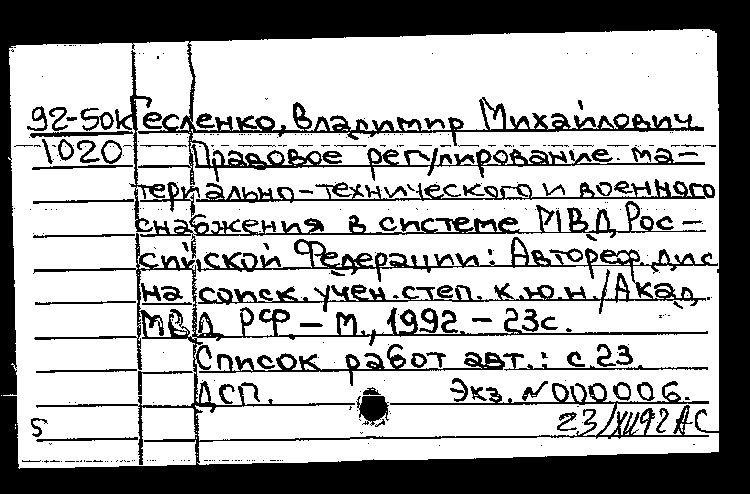 92-50к Гесленко, Владимир Михайлович
1020 Правовое регулирование ма-
териально-технического и военного
снабжения в системе МВД Рос-
сийской Федерации: Автореф. дис.
на соиск. учен. степ. к.ю.н./Акад.
МВД РФ. - М., 1992. - 23с.
Список работ авт.: с.23.
ДСП. Экз. N000006.
5 23/XII92 АС